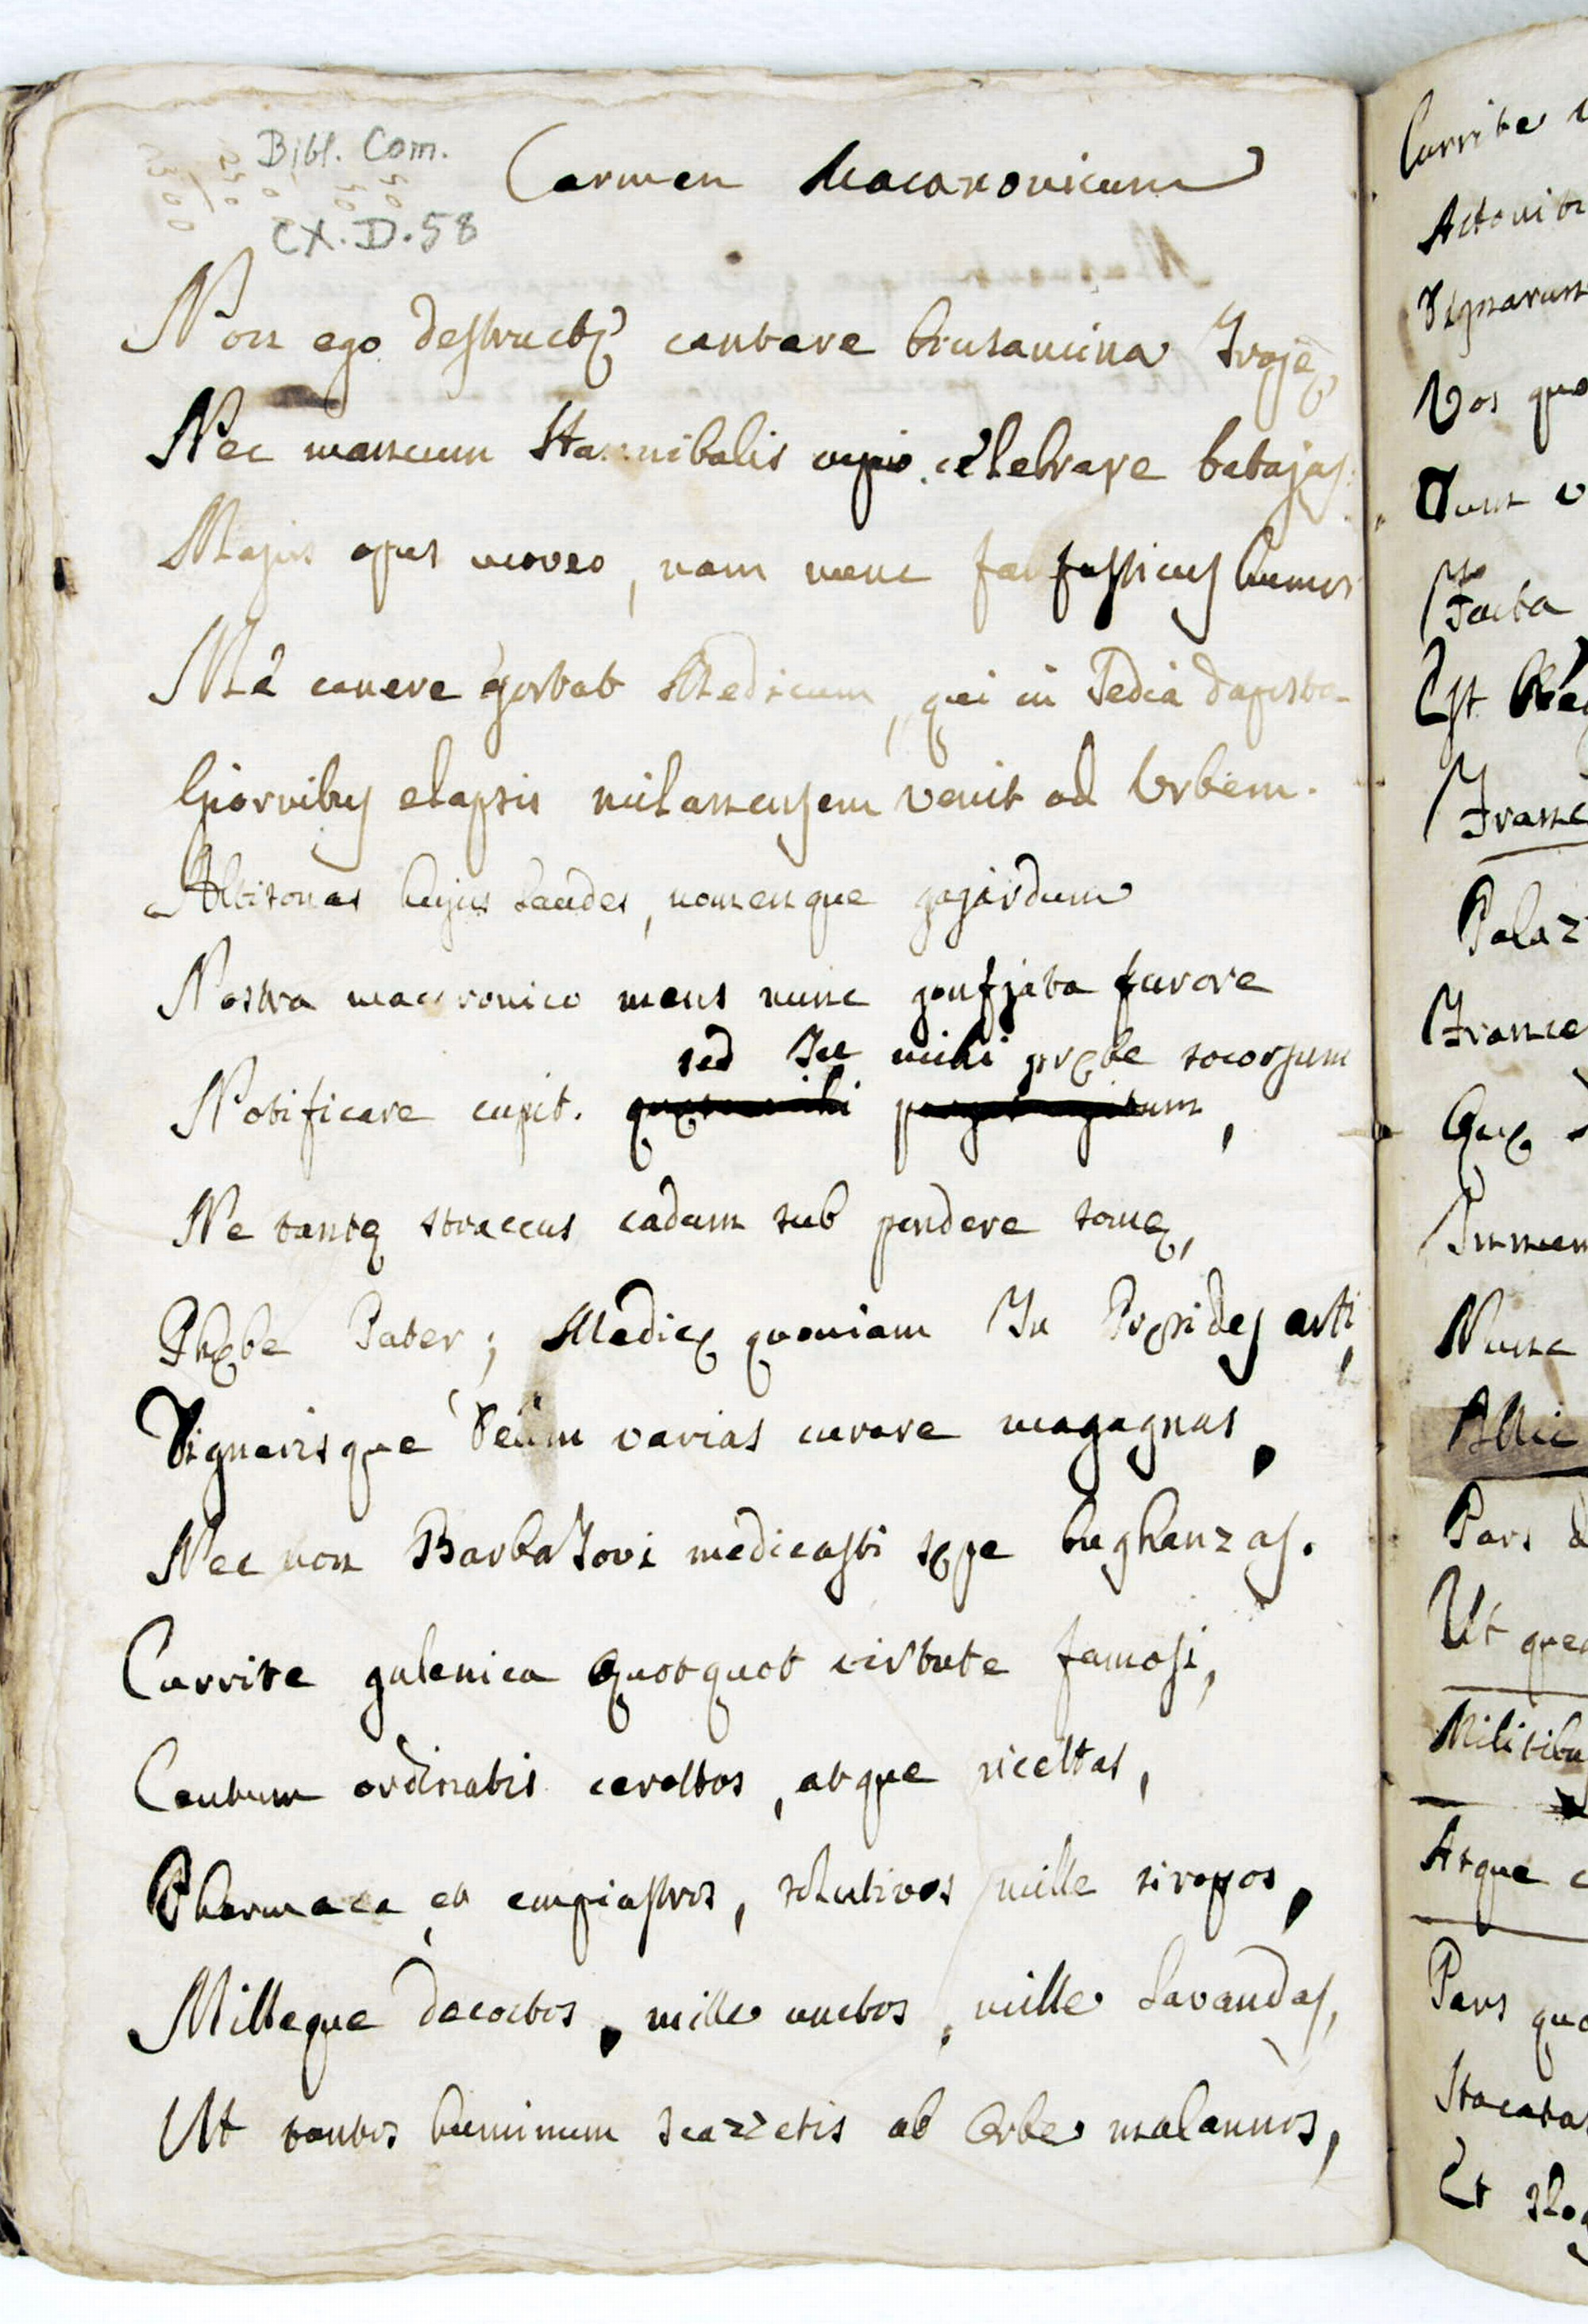 Bibl. Com.
CX. D. 58
Carmen Macaronicum
Non ego destructę cantare brusamina Troję
Nec mancum Hannibalis cupio celebrare batajas
Majus opus moveo, nam nunc fantasticus humor
Mè canere hortat Medicum, qui in Sedia daposta
Giornibus elapsis milanensem venit ad Urbem.
Altisonas hujus laudes, nomenque gajardum
Nostra macaronico mens nunc gonfjata furore
sed Tu mihi prębe socorsum
Notificare cupit.
Ne tantę straccus cadam sub pondere somę,
Phębe Pater; Medicę quoniam Tu Pręsides arti,
Dignarisque Deûm varias curare magagnas,
Nec non Barba Jovi medicasti sępe bughanzas.
Currite galenica quotquot virtute famosi,
Centum ordinatis cerottos, atque ricettas,
Pharmaca et empiastros, solutivos mille siropos,
Milleque decoctos, mille unctos, mille lavandas,
Ut tantos huminum scazzetis ab Orbe malannos,
Currite
Vos
Facta
Est
Quę
Nunc
Pars
Ut
Atque
Pars
Et